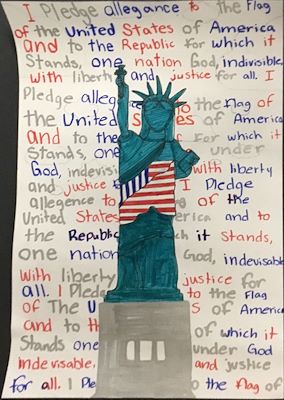 I Pledge allegance to the Flag
of the United States of America
and to the Republic for which it
Stands, one nation God, indivisible,
with liberty and justice for all. I
Pledge alleg to the Flag of
the United es of America
and to the for which it
Stands, one under
God, indevisi with liberty
and justice I Pledge
allegence to of the
United States erica and to
the Republic ch it Stands,
one nation God, indevisable
with liberty justice for
all. I Pled to the Flag
of The U S of America
and to th of which it
Stands one under God
indevisable, and justice
for all. I Ple o the flag of